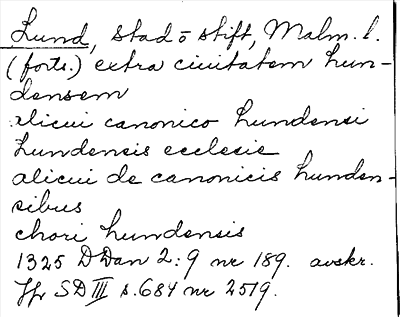 Lund, stad o stift, Malm. l.
(forts.) extra ciuitatem Lun-
densem
alicui canonico Lundensi
Lundensis ecclesie
alicui de canonicis Lunden-
sibus
chori Lundensis
1325 DDan 2:9 nr 189. avskr.
Jfr SD III s. 684 nr 2519.